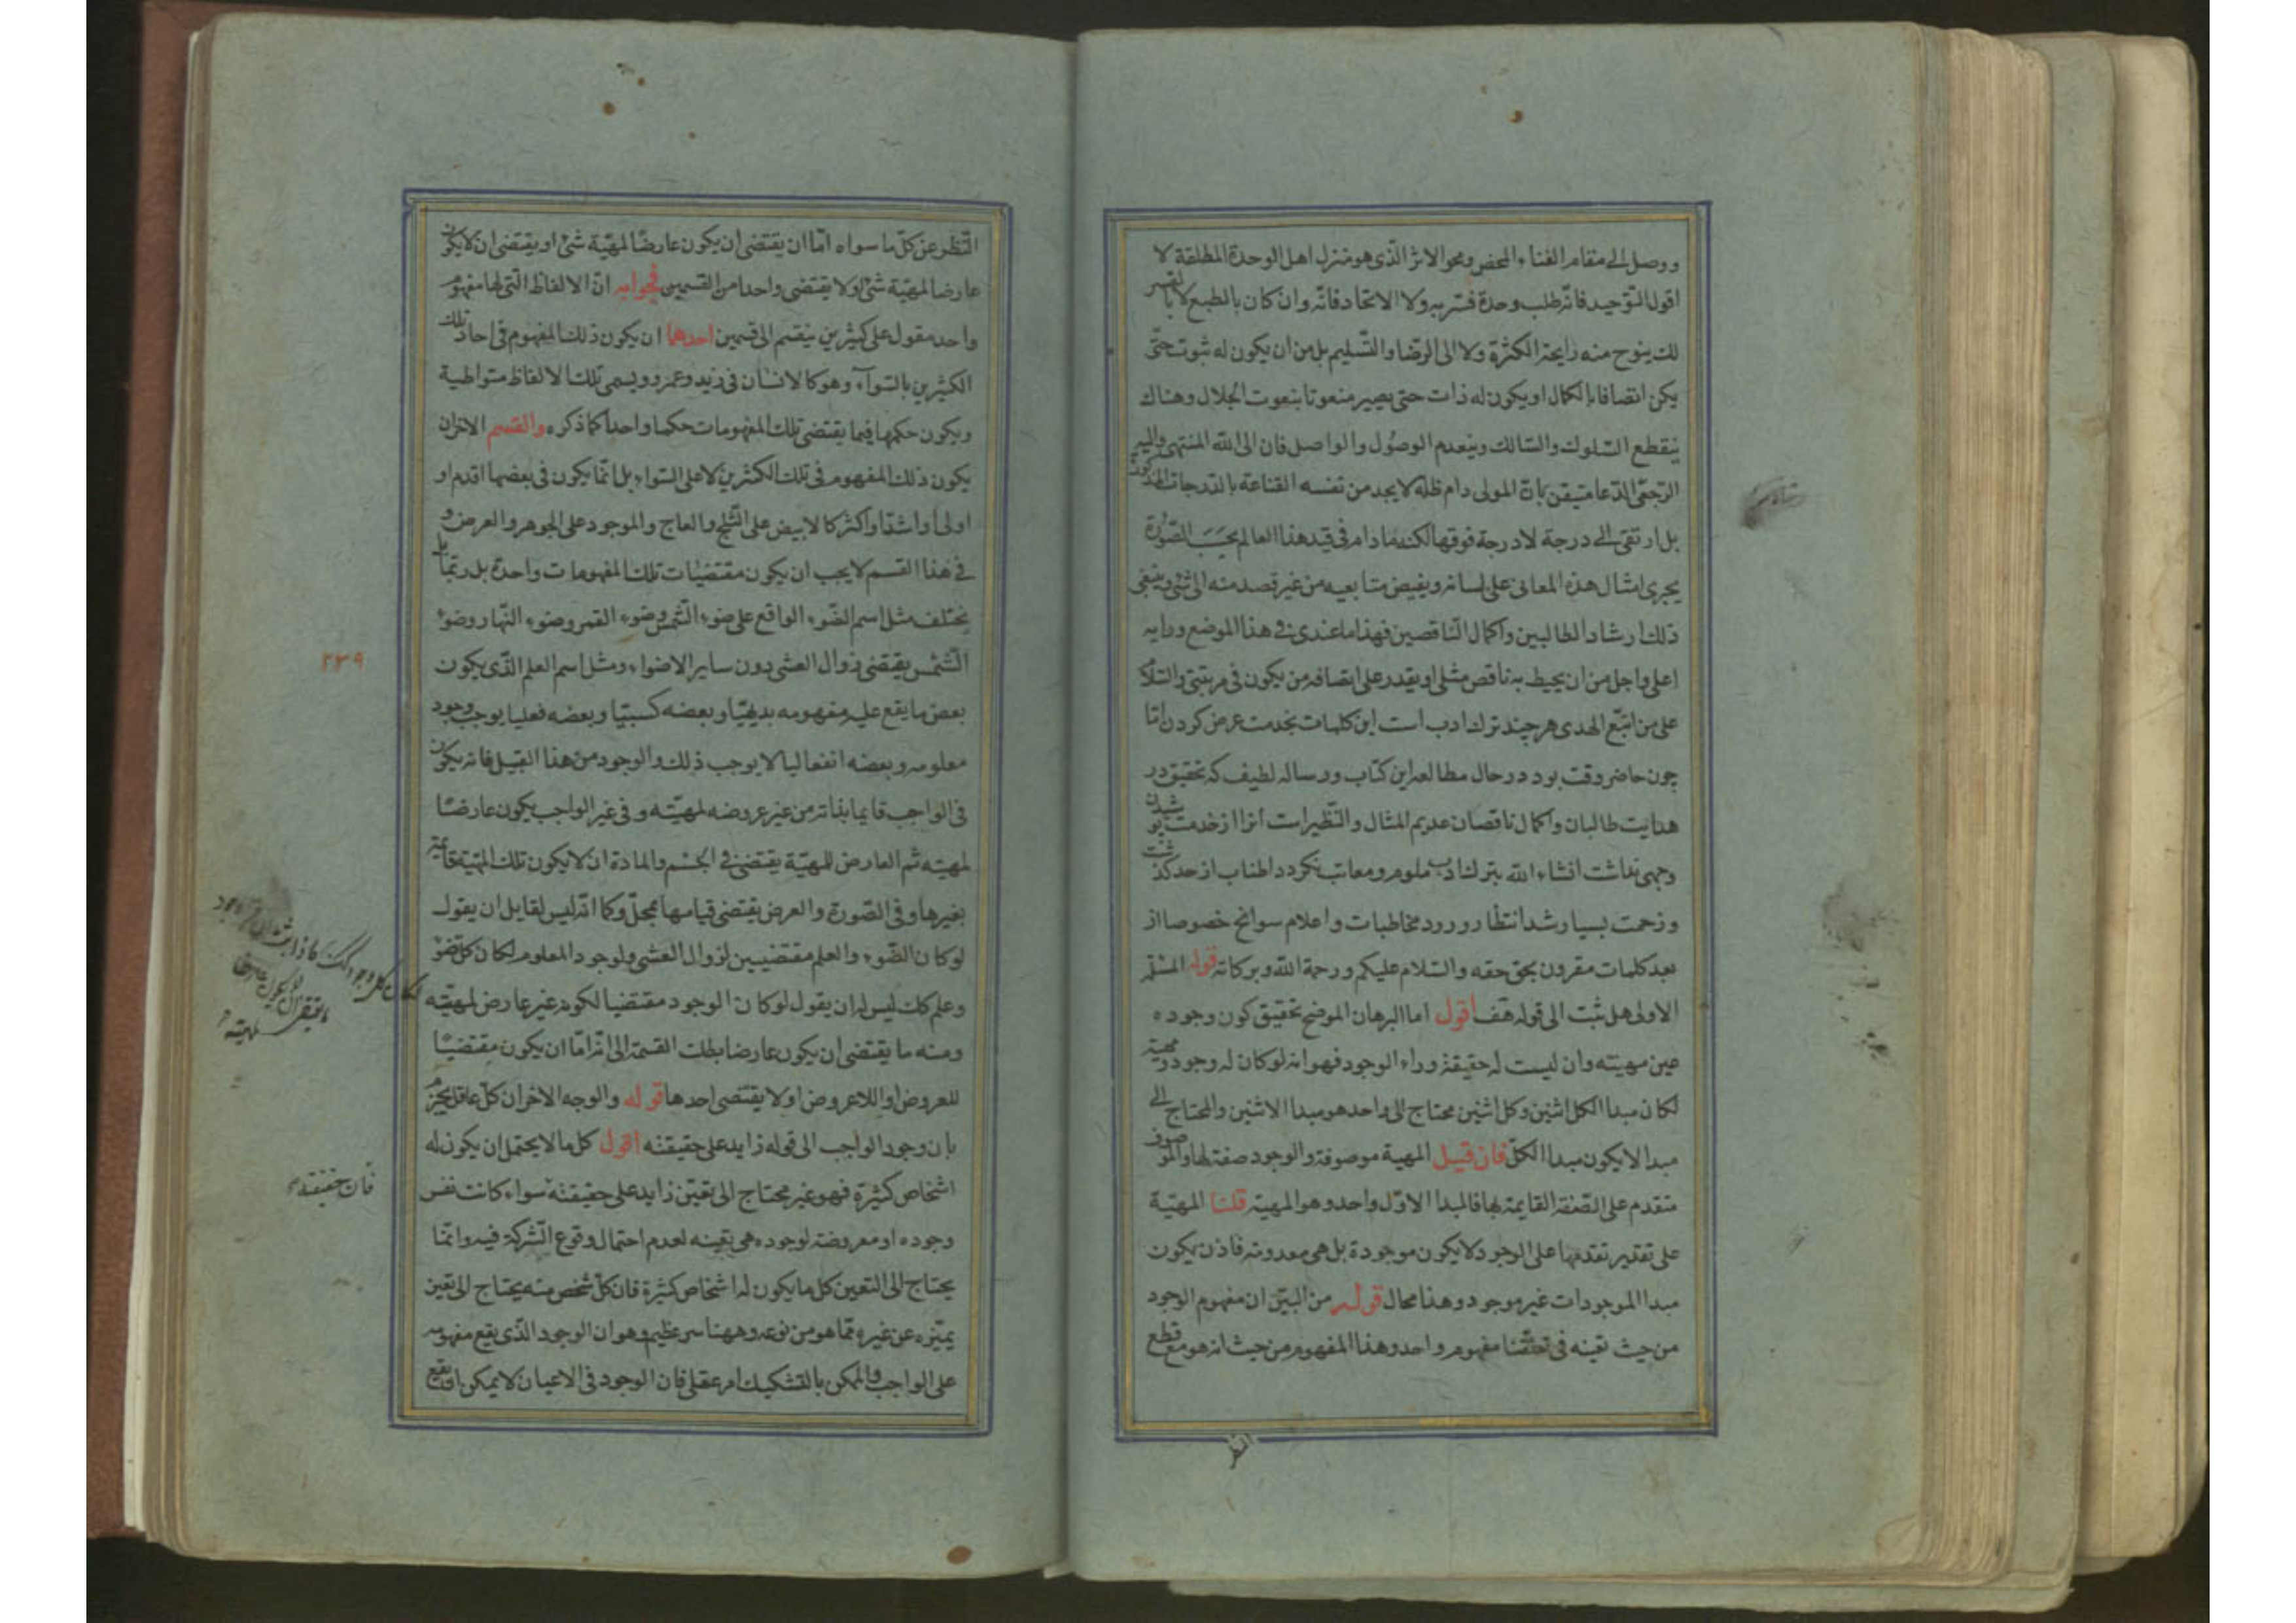 ووصل الى مقام الفناء المحض ومحو الاثر الذى هو منزل اهل الوحدة المطلقة لا
اقول التوحيد فانّه طلب وحدة قسريه ولا الاتحاد فانّه وان كان بالطبع لا بالقسر
لك يفوح منه رايحة الكثرة ولا الى الرضا والتسليم بل من ان يكون له ثبوت حتّى
يكن اتصافا بالكمال او يكون له ذات حتى يصير منعوتا بنعوت الجلال وهناك
ينقطع السّلوك والسّالك وينعدم الوصول والواصل فان الى اللّه المنتهى واليه
الرجعى الدعا متيقن بانّ المولى دام ظله لا يجد من نفسه القناعة بالدرجات المذكورة
بل ارتقى الى درجة لا درجة فوقها لكنه ما دام فى قيد هذا العالم بحسب الصّورة
يجرى امثال هذه المعانى على لسانه ويفيض متابعيه من غير قصد منه الى شئ وينبغى
ذلك ارشاد الطالبين واكمال الناقصين فهذا ما عندى فى هذا الموضع ورايه
اعلى واجل من ان يحيط به ناقص مثلى او يقدر على اتصافه من يكون فى مرتبتى والسّلام
على من اتبّع الهدى هر چند ترك ادب است اين كلمات بخدمت عرض كردن امّا
چون حاضر وقت بود در حال مطالعه اين كتاب ورساله لطيف كه تحقيق در
هدايت طالبان واكمال ناقصان عديم المثال والنّظير است انرا از خدمت پوشيدن
وجهى نداشت انشاء اللّه بترك ادب ملوم ومعاتب نكردد اطناب از حد كذشت
وزحمت بسيار شد انتظار ورود مخاطبات واعلام سوانح خصوصا از
بعد كلمات مقرون بحق حقه والسّلام عليكم ورحمة اللّه وبركاته قوله المسئلة
الاولى هل ثبت الى قوله قف اقول اما البرهان الموضح تحقيق كون وجوده
عين مهيته وان ليست له حقيقة وراء الوجود فهو انه لو كان له وجود ومهية
لكان مبدا الكل اثنين وكل اثنين محتاج الى واحد هو مبدا الاثنين والمحتاج الى
مبدا لا يكون مبدا الكلّ فان قيل المهية موصوفة والوجود صفة لها والموصوف
متقدم على الصّفة القايمة بها فالمبدا الاوّل واحد وهو المهية قلنا المهيّة
على تقدير تقدمها على الوجود لا يكون موجودة بل هى معدومة فاذن يكون
مبدا الموجودات غير موجود وهذا محال قوله من البيّن ان مفهوم الوجود
من حيث تعينه فى تعقّلنا مفهوم واحد وهذا المفهوم من حيث انه هو مع قطع
النظر
النّظر عن كلّ ما سواه امّا ان يقتضى ان يكون عارضا لمهيّة شئ او يقتضى ان لا يكون
عارضا لمهيّة شئ او لا يقتضى واحدا من القسمين فجوابه انّ الالفاظ الّتى لها مفهوم
واحد مقول على كثيرين ينقسم الى قسمين احدهما ان يكون ذلك المفهوم فى احاد تلك
الكثيرين بالسّواء وهو كالانسان فى زيد وعمرو ويسمى تلك الالفاظ متواطية
ويكون حكمها فيما يقتضى تلك المفهومات حكما واحدا كما ذكره والقسم الاخر ان
يكون ذلك المفهوم فى تلك الكثيرين لا على السّواء بل انّما يكون فى بعضها اقدم او
اولى او اشدّ او اكثر كالابيض على الثّلج والعاج والموجود على الجوهر والعرض و
فى هذا القسم لا يجب ان يكون مقتضيات تلك المفهومات واحدة بل ربّما
يختلف مثل اسم الضّوء الواقع على ضوء الشّمس وضوء القمر وضوء النّهار وضوء
الشّمس يقتضى زوال العشى دون ساير الاضواء ومثل اسم العلم الذّى يكون
٢٣٩
بعض ما يقع عليه مفهومه بديهيّا وبعضه كسبيّا وبعضه فعليا يوجب وجود
معلومه وبعضه انفعاليا لا يوجب ذلك والوجود من هذا القبيل فانه يكون
فى الواجب قايما بذاته من غير عروضه لمهيّته وفى غير الواجب يكون عارضا
لمهيته ثم العارض للمهيّة يقتضى فى الجسم والمادة ان لا يكون تلك المهيّة قايمة
بغيرها وفى الصّورة والعرض يقتضى قيامها بمحلّ وكما انّه ليس لقايل ان يقول
لو كان الضّوء والعلم مقتضيين لزوال العشى ولوجود المعلوم لكان كل ضوء
وعلم كك ليس له ان يقول لو كان الوجود مقتضيا لكونه غير عارض لمهيّته
ومنه ما يقتضى ان يكون عارضا بطلت القسمة الى انّه امّا ان يكون مقتضيا
للعروض او اللاعروض او لا يقتضى احدها قوله والوجه الاخر ان كلّ عاقل يجزم
بان وجود الواجب الى قوله زايد على حقيقته اقول كل ما لا يحتمل ان يكون له
اشخاص كثيرة فهو غير محتاج الى تعيّن زايد على حقيقته سواء كانت نفس
فان حقيقته
وجوده او معروضة لوجوده هى تعينه لعدم احتمال وقوع الشّركة فيه وانّما
يحتاج الى التعين كل ما يكون له اشخاص كثيرة فان كلّ شخص منه يحتاج الى تعين
يميّزه عن غيره ممّا هو من نوعه وههنا سر عظيم وهو ان الوجود الذّى يقع مفهومه
على الواجب والممكن بالتشكيك امر عقلى فان الوجود فى الاعيان لا يمكن ان يقع